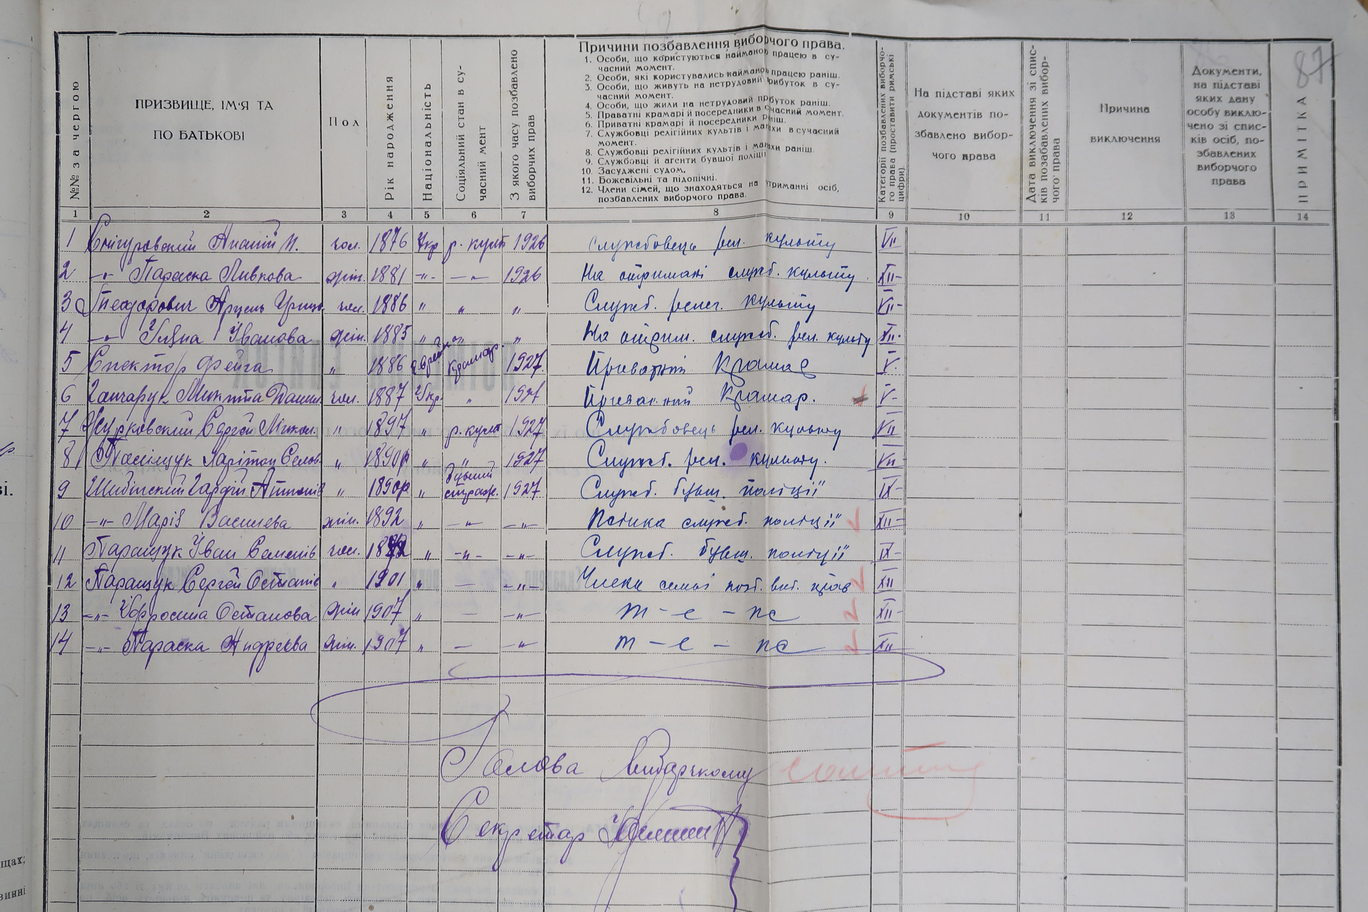 87
№№ за чергою
ПРИЗВИЩЕ, ІМ'Я ТА
ПО БАТЬКОВІ
Пол
Рік народження
Національність
Соціяльний стан в су-
часний мент
З якого часу позбавлено
виборчих прав
Причини позбавлення виборчого права.
1. Особи, що користуються найманою працею в су-
часний момент.
2. Особи, які користувались найманою працею раніш.
3. Особи, що живуть на нетрудовий прибуток в су-
часний момент.
4. Особи, що жили на нетрудовий прибуток раніш.
5. Приватні крамарі й посередники в сучасний момент.
6. Приватні крамарі й посередники раніш.
7. Службовці релігійних культів і монахи в сучасний
момент.
8. Службовці релігійних культів і монахи раніш.
9. Службовці й агенти бувшої поліції
10. Засуджені судом.
11. Божевільні та підопічні.
12. Члени сімей, що знаходяться на утриманні осіб,
позбавлених виборчого права.
Категорії позбавлених виборчо-
го права (проставити римські
цифри).
На підставі яких
документів по-
збавлено вибор-
чого права
Дата виключення зі спис-
ків позабавлених вибор-
чого права
Причина
виключення
Документи,
на підставі
яких дану
особу виклю-
чено зі спис-
ків осіб, по-
збавлених
виборчого
права
ПРИМІТКА
1 2 3 4 5 6 7 8 9 10 11 12 13 14
1 Снігуровський чол. 1876 Укр р. культ 1926 Службовець рел. культу VII
2 -"- Параска жін. 1881 -"- -"- 1926 На отриманні служб. культу XII-
3 Теодорович чол. 1886 " " " Служб. релег. культу VII-
4 -"- Ганна Іванова жін. 1885 " " " На отрим. служб. рел. культу XII-
5 Спектор Фейга " 1886 Єврейка Крамар. 1927 Приватний Крамар V-
6 Гончарук Микита чол. 1887 Укр " 1927 Приватний Крамар. V-
7 Сергій Микол. " 1897 " р. культ 1927 Службовець рел. культу VII
8 Харітон " 1890р " " 1927 Служб. рел. культу. VII
9 " 1890р " бувший стражн. 1927 Служб. бувш. поліції IX-
10 -"- Марія Василева жін. 1892 " -"- -"- служб. поліції XII-
11 Паращук Іван Семенів чол. " -"- -"- Служб. бувш. поліції IX-
12 Паращук Сергій Остапів " 1901 " — -"- Члени семьї позб. виб. прав XII
13 -"- Єфросина Остапова жін 1907 " — -"- т - е - пс XII-
14 -"- Параска Андреєва жін. 1907 " — -"- т - е - пс XII
Голова
Секретар